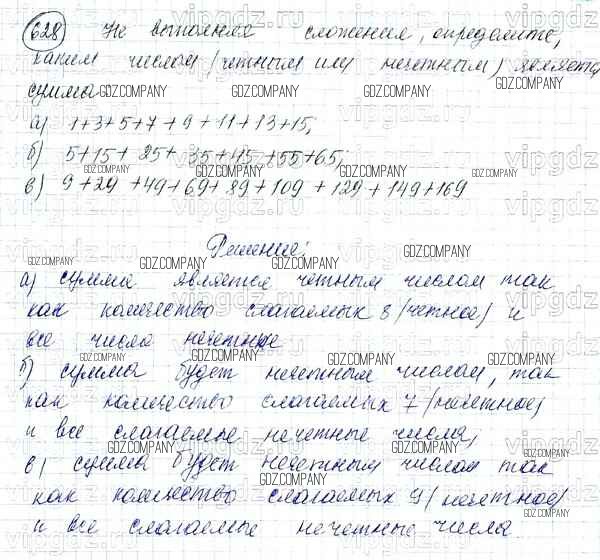 628 Не выполняя сложения, определите,
каким числом (четным или нечетным) является
сумма:
а) 1+3+5+7+9+11+13+15;
б) 5+15+25+35+45+55+65;
в) 9+29+49+69+89+109+129+149+169
Решение:
а) сумма является четным числом так
как количество слагаемых 8 (четное) и
все числа нечетные
б) сумма будет нечетным числом, так
как количество слагаемых 7 (нечетное)
и все слагаемые нечетные числа,
в) сумма будет нечетным числом так
как количество слагаемых 9 (нечетное)
и все слагаемые нечетные числа